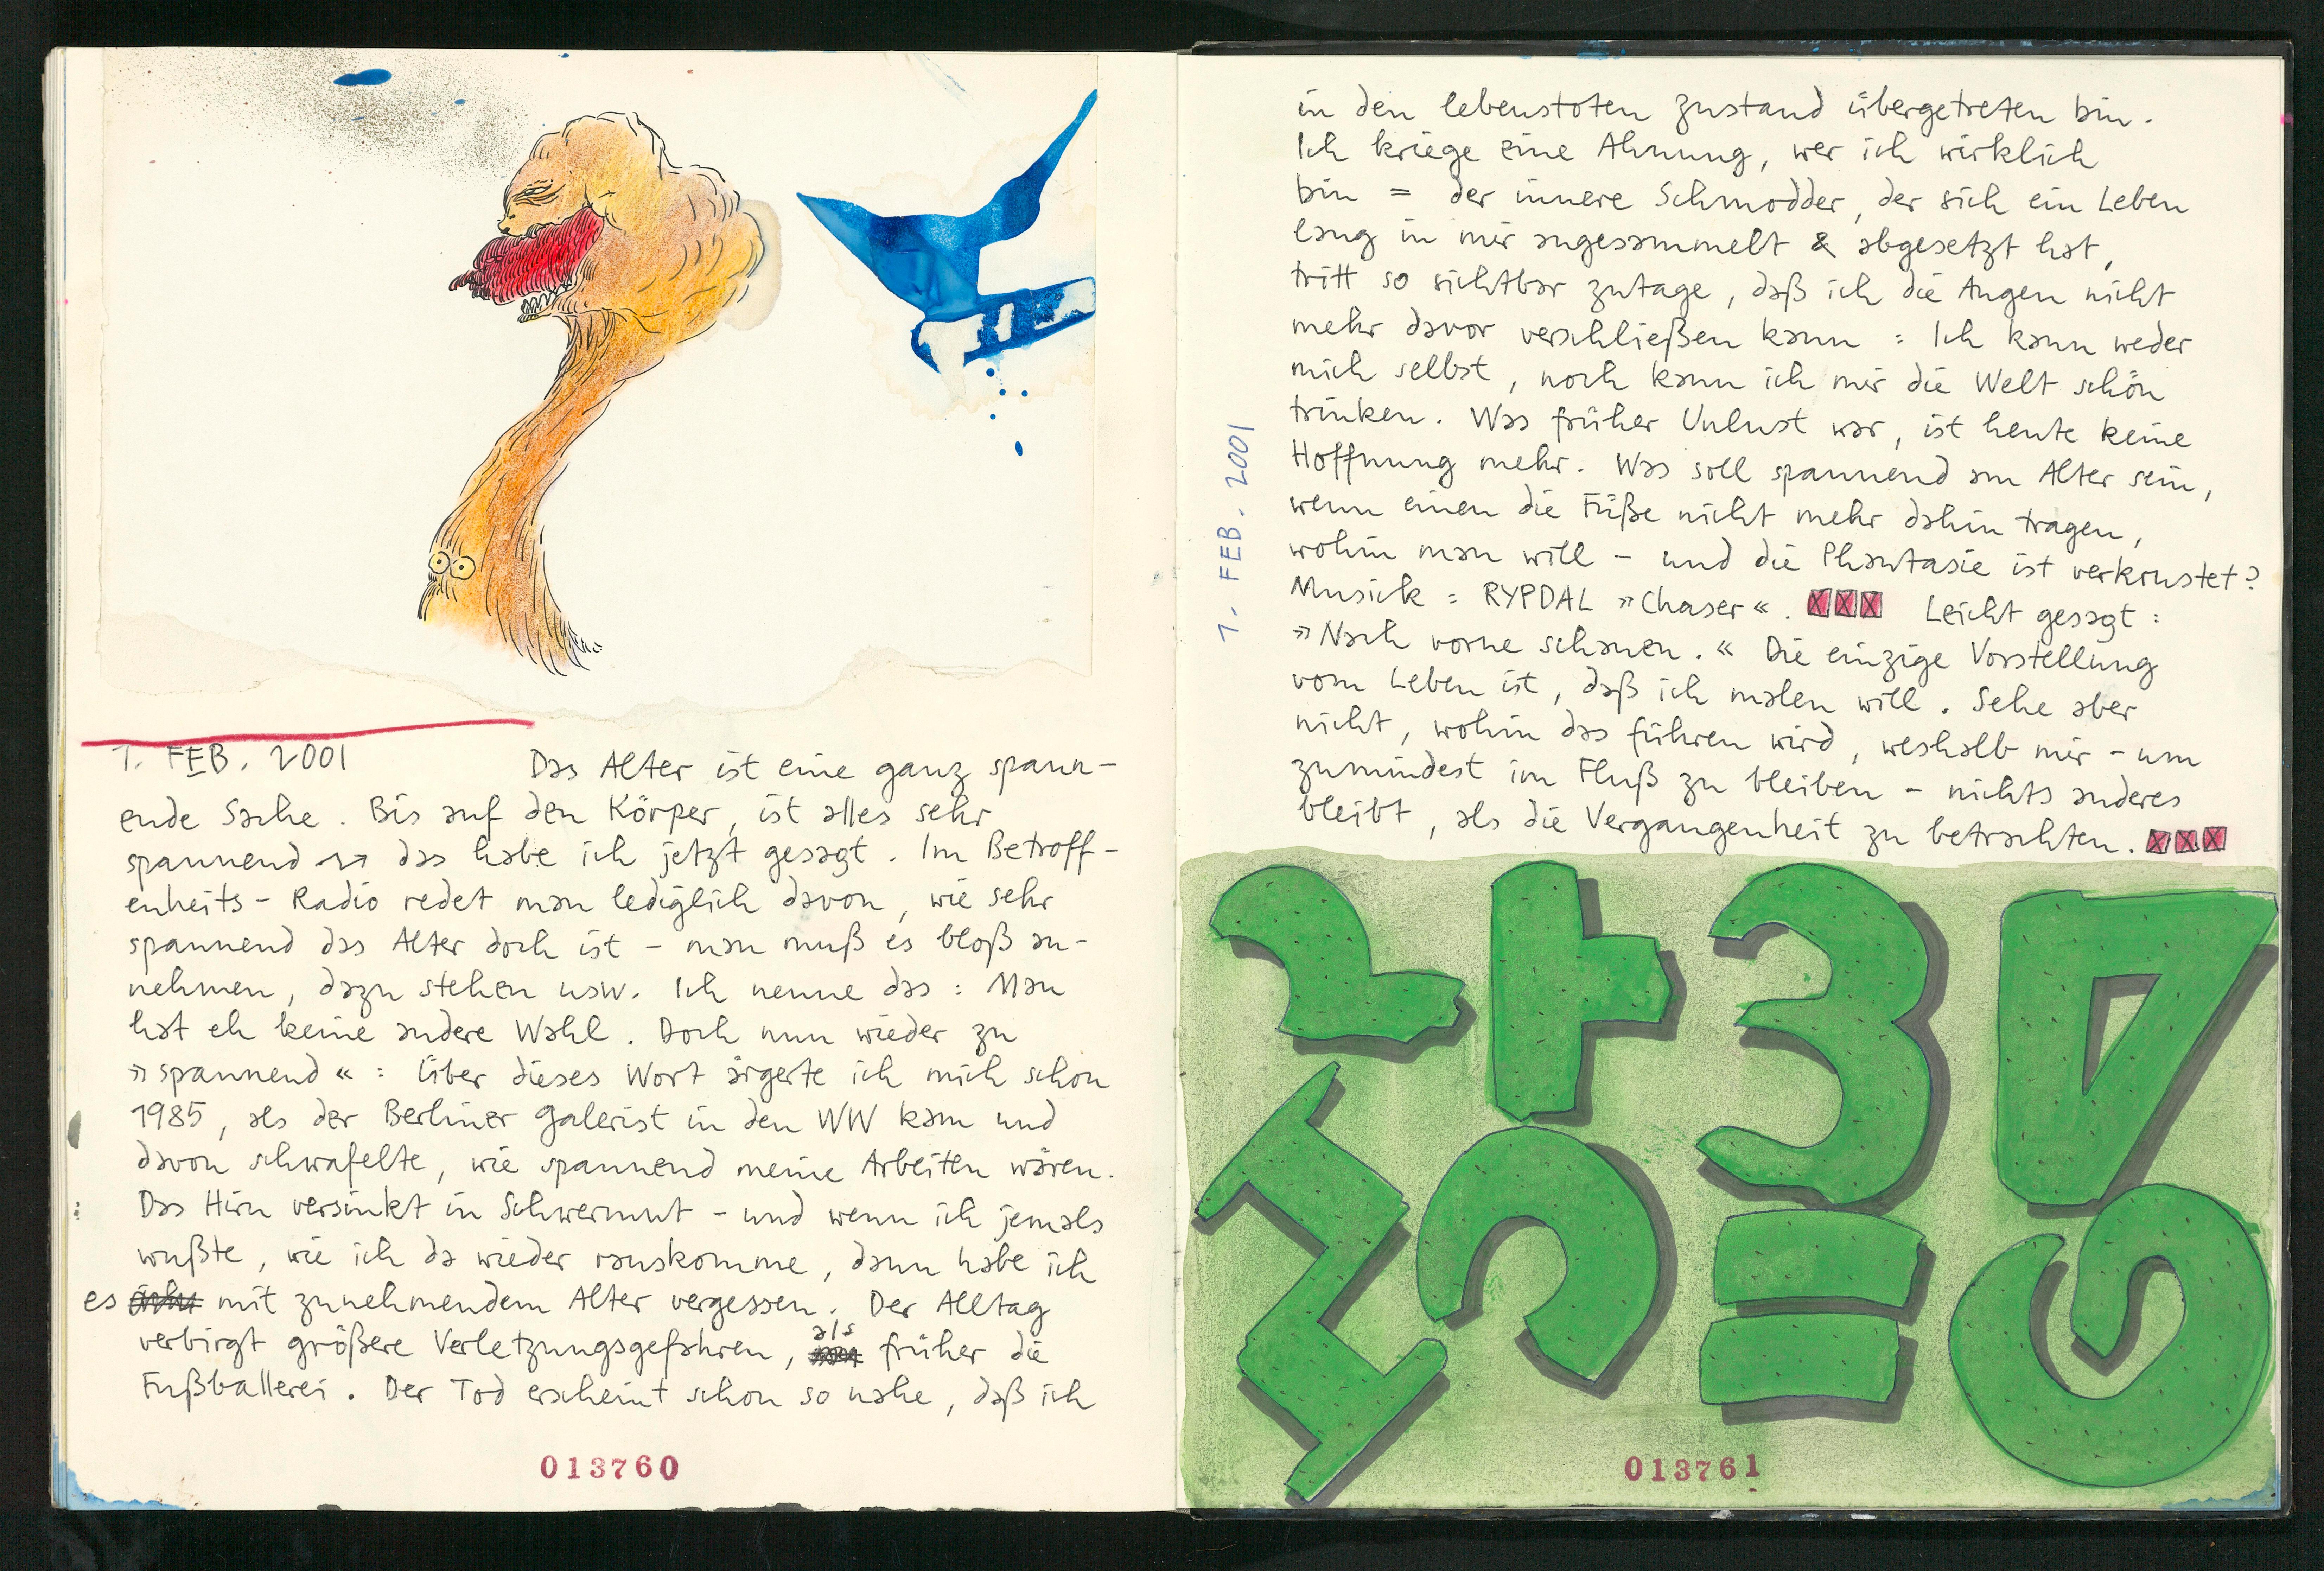 1. FEB. 2001 Das Alter ist eine ganz spann-
ende Sache. Bis auf den Körper, ist alles sehr
spannend → das habe ich jetzt gesagt. Im Betroff-
enheits-Radio redet man lediglich davon, wie sehr
spannend das Alter doch ist – man muß es bloß an-
nehmen, dazu stehen usw. Ich nenne das: Man
hat eh keine andere Wahl. Doch nun wieder zu
»spannend«: Über dieses Wort ärgerte ich mich schon
1985, als der Berliner Galerist in den WW kam und
davon schwafelte, wie spannend meine Arbeiten wären.
Das Hirn versinkt in Schwermut – und wenn ich jemals
wußte, wie ich da wieder rauskomme, dann habe ich
es mit zunehmendem Alter vergessen. Der Alltag
verbirgt größere Verletzungsgefahren, als früher die
Fußballerei. Der Tod erscheint schon so nahe, daß ich
013760
in den lebenstoten Zustand übergetreten bin.
Ich kriege eine Ahnung, wer ich wirklich
bin = der innere Schmodder, der sich ein Leben
lang in mir angesammelt & abgesetzt hat,
tritt so sichtbar zutage, daß ich die Augen nicht
mehr davor verschließen kann: Ich kann weder
mich selbst, noch kann ich mir die Welt schön
trinken. Was früher Unlust war, ist heute keine
Hoffnung mehr. Was soll spannend am Alter sein,
wenn einen die Füße nicht mehr dahin tragen,
wohin man will – und die Phantasie ist verkrustet?
Musick: RYPDAL »Chaser«. XXX Leicht gesagt:
»Nach vorne schauen.« Die einzige Vorstellung
vom Leben ist, daß ich malen will. Sehe aber
nicht, wohin das führen wird, weshalb mir – um
zumindest im Fluß zu bleiben – nichts anderes
bleibt, als die Vergangenheit zu betrachten. XXX
1. FEB. 2001
013761